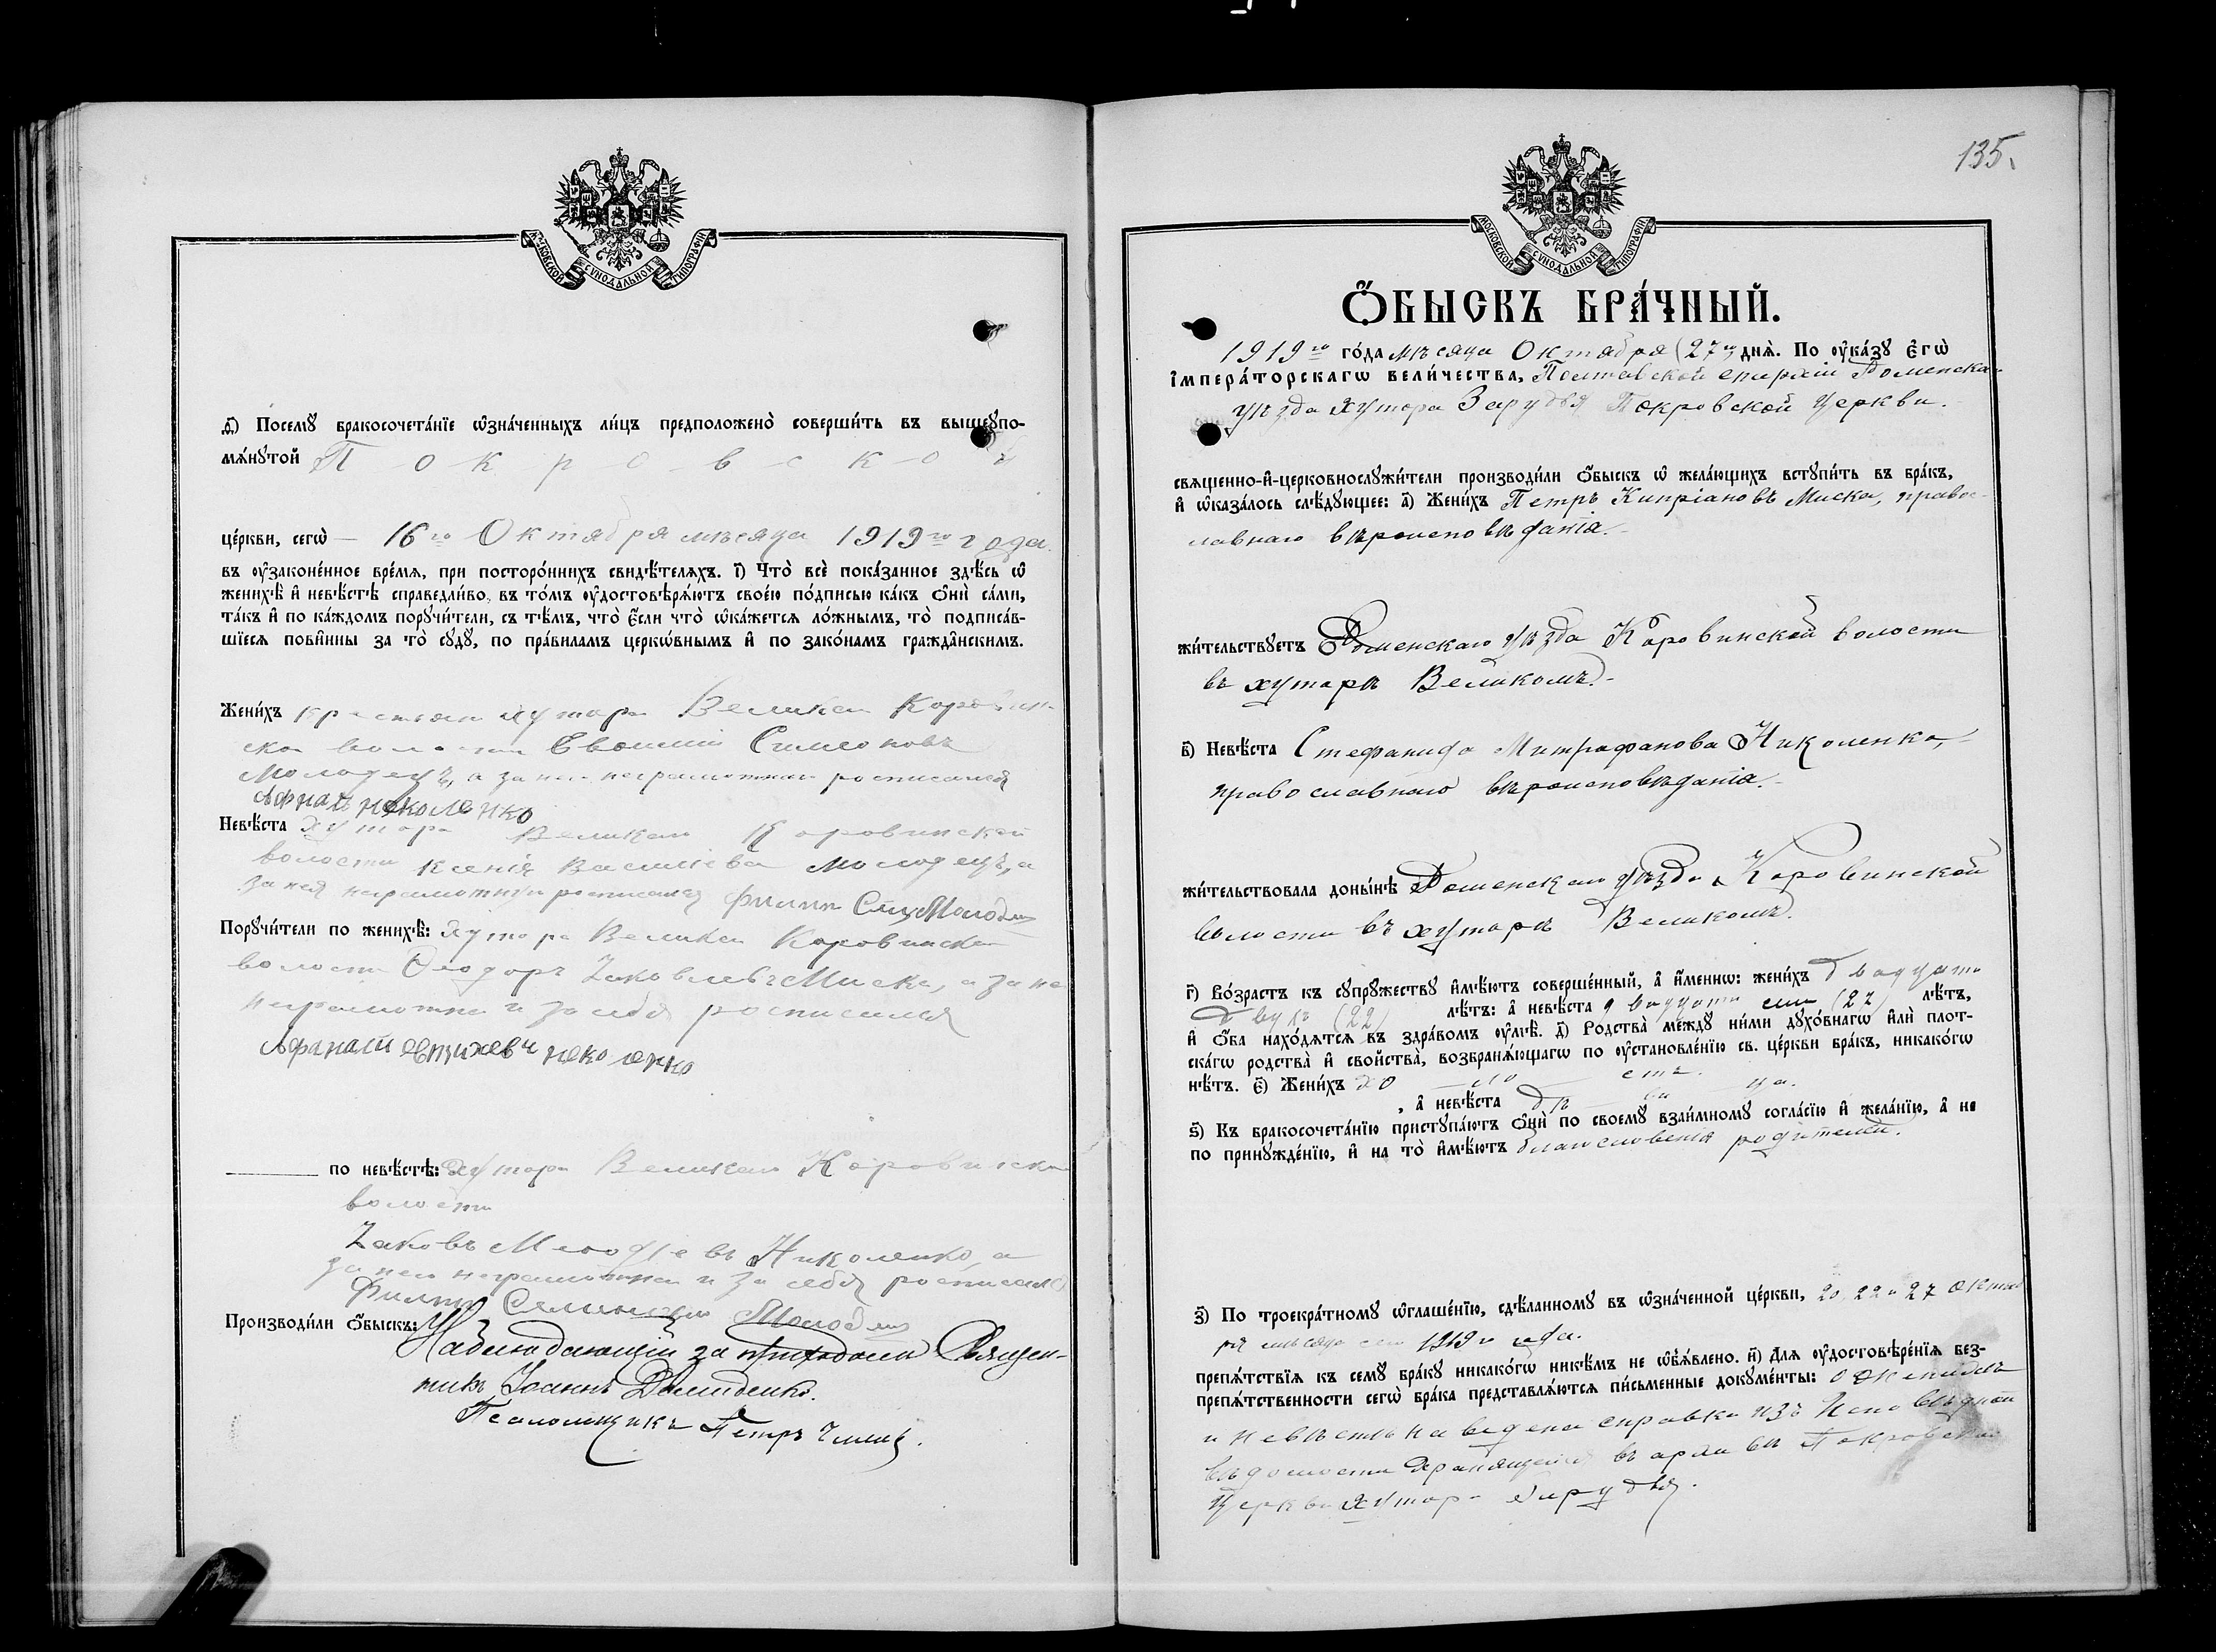 МОСКОВСКОЙ СѴНОДАЛЬНОЙ ТИПОГРАФІИ
ѳ҃) Посемꙋ бракосочета́нїе ѡ҆зна́ченныхъ ли́цъ предположено̀ соверши́ть въ вышеꙋпо-
мѧ́нꙋтой П о к р о в с к о й
це́ркви, сегѡ̀ — 16го Октября мѣсяца 1919го года.
въ ᲂу҆законе́нное вре́мѧ, при посторо́ннихъ свидѣ́телѧхъ. і҃) Что̀ всѐ пока́занное здѣ́сь ѡ҆
женихѣ̀ и҆ невѣ́стѣ справедли́во, въ то́мъ ᲂу҆достовѣрѧ́ютъ свое́ю по́дписью ка́къ ѻ҆нѝ са́ми,
та́къ и҆ по ка́ждомъ порꙋчи́тели, съ тѣ́мъ, что̀ є҆́сли что̀ ѡ҆ка́жетсѧ ло́жнымъ, то̀ подписа́в-
шїесѧ пови́нны за то̀ сꙋдꙋ̀, по пра́виламъ церкѡ́внымъ и҆ по зако́намъ гражда̂нскимъ.
Жени́хъ хутора Великаго Коровин-
ской волости Симеоновъ
Молодецъ, а за него неграмотнаго росписался
Афнаси неколенко
Невѣ́ста хутора Великаго Коровинской
волости Ксенія Василіева Молодецъ, а
за нея неграмотную росписался Филип
Порꙋчи́тели по женихѣ̀: хутора Великаго Коровинской
волости Ѳеодоръ Іаковлевъ Миска, а за него
неграмотнаго и за себя росписался
Афанаси евтихевъ неколенко
по невѣ́стѣ: хутора Великаго Коровинской
волости
Іаковъ Николенко, а
за него неграмотнаго и за себя росписался
Филип
Производи́ли ѻ҆́быскъ: Наблюдающій за приходомъ Священ-
никъ Іоаннъ Демиденко.
Псаломщикъ Петръ
135.
МОСКОВСКОЙ СѴНОДАЛЬНОЙ ТИПОГРАФІИ
Ѻ҆́БЫСКЪ БРА́ЧНЫЙ.
1919го го́да мѣсяца Октября (27го) днѧ̀. По ᲂу҆ка́зꙋ є҆гѡ̀
і҆мпера́торскагѡ вели́чества, Полтавской епархіи Роменскаго
уѣзда хутора Зарудья Покровской церкви.
свѧщенно-и҆-церковнослꙋжи́тели производи́ли ѻ҆́быскъ ѡ҆ жела́ющихъ встꙋпи́ть въ бра́къ,
и҆ ѡ҆каза́лось слѣ́дꙋющее: а҃) Жени́хъ Петръ Кипріановъ Миска, право-
славнаго вѣроисповѣданія.
жи́тельствꙋетъ Роменскаго уѣзда Коровинской волости
въ хуторѣ Великомъ.
в҃) Невѣ́ста Стефанида Митрофанова Николенко,
православнаго вѣроисповѣданія.
жи́тельствовала доны́нѣ Роменскаго уѣзда Коровинской
волости въ хуторѣ Великомъ.
г҃) Во́зрастъ къ сꙋпрꙋ́жествꙋ и҆мѣ́ютъ соверше́нный, а҆ и҆́меннѡ: жени́хъ двадцати
двухъ (22) лѣ́тъ: а҆ невѣ́ста двадцати лѣ́тъ,
и҆ ѻ҆́ба нахо́дѧтсѧ въ здра́вомъ ᲂу҆мѣ̀. д҃) Родства̀ междꙋ ни́ми дꙋхо́внагѡ и҆лѝ плот-
ска́гѡ родства̀ и҆ свойства̀, возбранѧ́ющагѡ по ᲂу҆становле́нїю св. це́ркви бра́къ, никако́гѡ
нѣ́тъ. є҃) Жени́хъ хо ло стъ.
, а҆ невѣ́ста дѣ ви ца.
ѕ҃) Къ бракосочета́нїю пристꙋпа́ютъ ѻ҆нѝ по своемꙋ̀ взаи́мномꙋ согла́сїю и҆ жела́нїю, а҆ не
по принꙋжде́нїю, и҆ на то̀ и҆мѣ́ютъ благословенія родителей.
з҃) По троекра́тномꙋ ѡ҆глаше́нїю, сдѣ́ланномꙋ въ ѡ҆зна́ченной це́ркви, 20, 22 и 27 октяб
ря мѣсяца сего 1919го года.
препѧ́тствїѧ къ семꙋ̀ бра́кꙋ никако́гѡ никѣ́мъ не ѡ҆б̾ѧ́влено. и҃) Длѧ ᲂу҆достовѣре́нїѧ без-
препѧ́тственности сегѡ̀ бра́ка представлѧ́ютсѧ пи́сьменные докꙋме́нты: о женихѣ
и невѣстѣ наведена справка изъ Исповѣдной
вѣдомости хранящейся въ архивѣ Покровской
церкви хутора Зарудья.